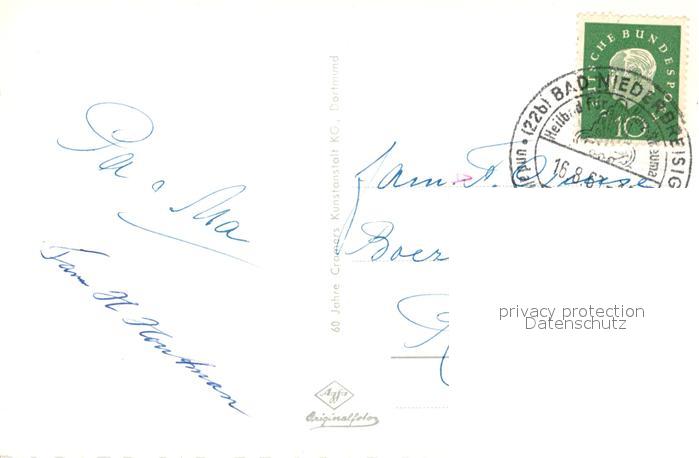 Pa & Ma
Fam H Houtman
60 Jahre Cramers Kunstanstalt KG., Dortmund
Agfa
Originalfotos
DEUTSCHE BUNDESPOST
10
(22b) BAD NIEDERBREISIG
Heilbad für
16.8.6
Fam.
Boer
privacy protection
Datenschutz